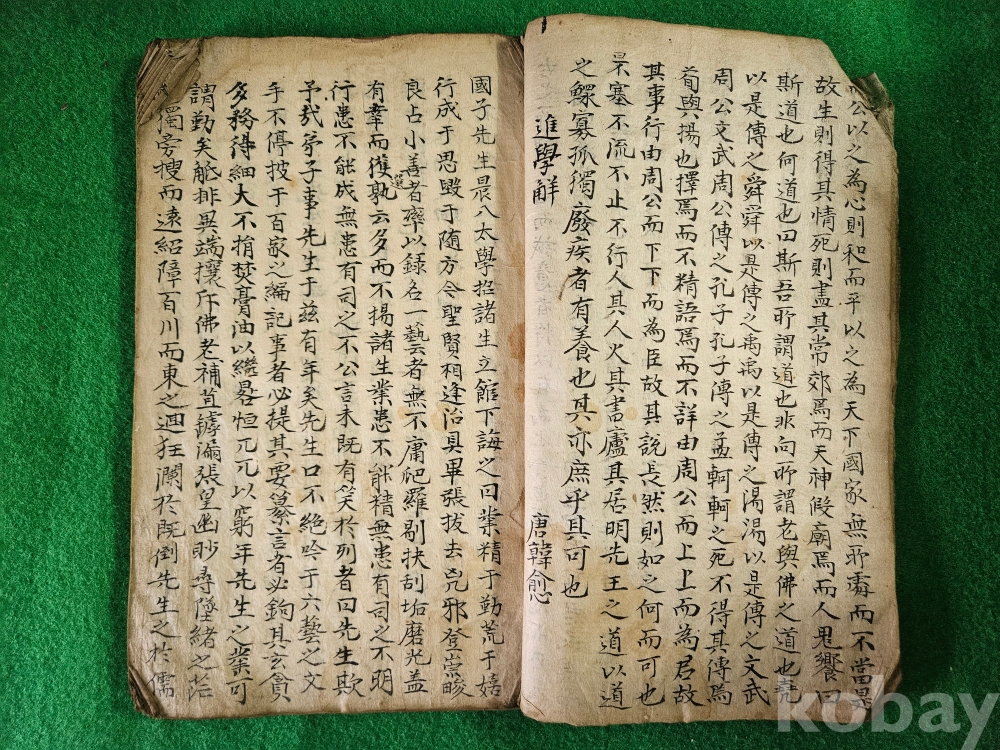 而公以之為心則和而平以之為天下國家無所處而不當是
故生則得其情死則盡其常郊焉而天神假廟焉而人鬼饗曰
斯道也何道也曰斯吾所謂道也非向所謂老與佛之道也堯
以是傳之舜舜以是傳之禹禹以是傳之湯湯以是傳之文武
周公文武周公傳之孔子孔子傳之孟軻軻之死不得其傳焉
荀與揚也擇焉而不精語焉而不詳由周公而上上而為君故
其事行由周公而下下而為臣故其說長然則如之何而可也
不塞不流不止不行人其人火其書廬其居明先王之道以道
之鰥寡孤獨廢疾者有養也其亦庶乎其可也
進學解 唐韓愈
國子先生晨入太學招諸生立館下誨之曰業精于勤荒于嬉
行成于思毀于随方今聖賢相逢治具畢張拔去兇邪登崇畯
良占小善者率以録名一藝者無不庸爬羅剔抉刮垢磨光盖
有幸而獲選孰云多而不揚諸生業患不能精無患有司之不明
行患不能成無患有司之不公言未既有笑於列者曰先生欺
予哉弟子事先生于茲有年矣先生口不絕吟于六藝之文
手不停披于百家之編記事者必提其要纂言者必鉤其玄貪
多務得細大不捐焚膏油以繼晷恒兀兀以窮年先生之業可
謂勤矣觝排異端攘斥佛老補苴罅漏張皇幽眇尋墜緒之茫
獨旁搜而遠紹障百川而東之迴狂瀾於既倒先生之於儒
kobay